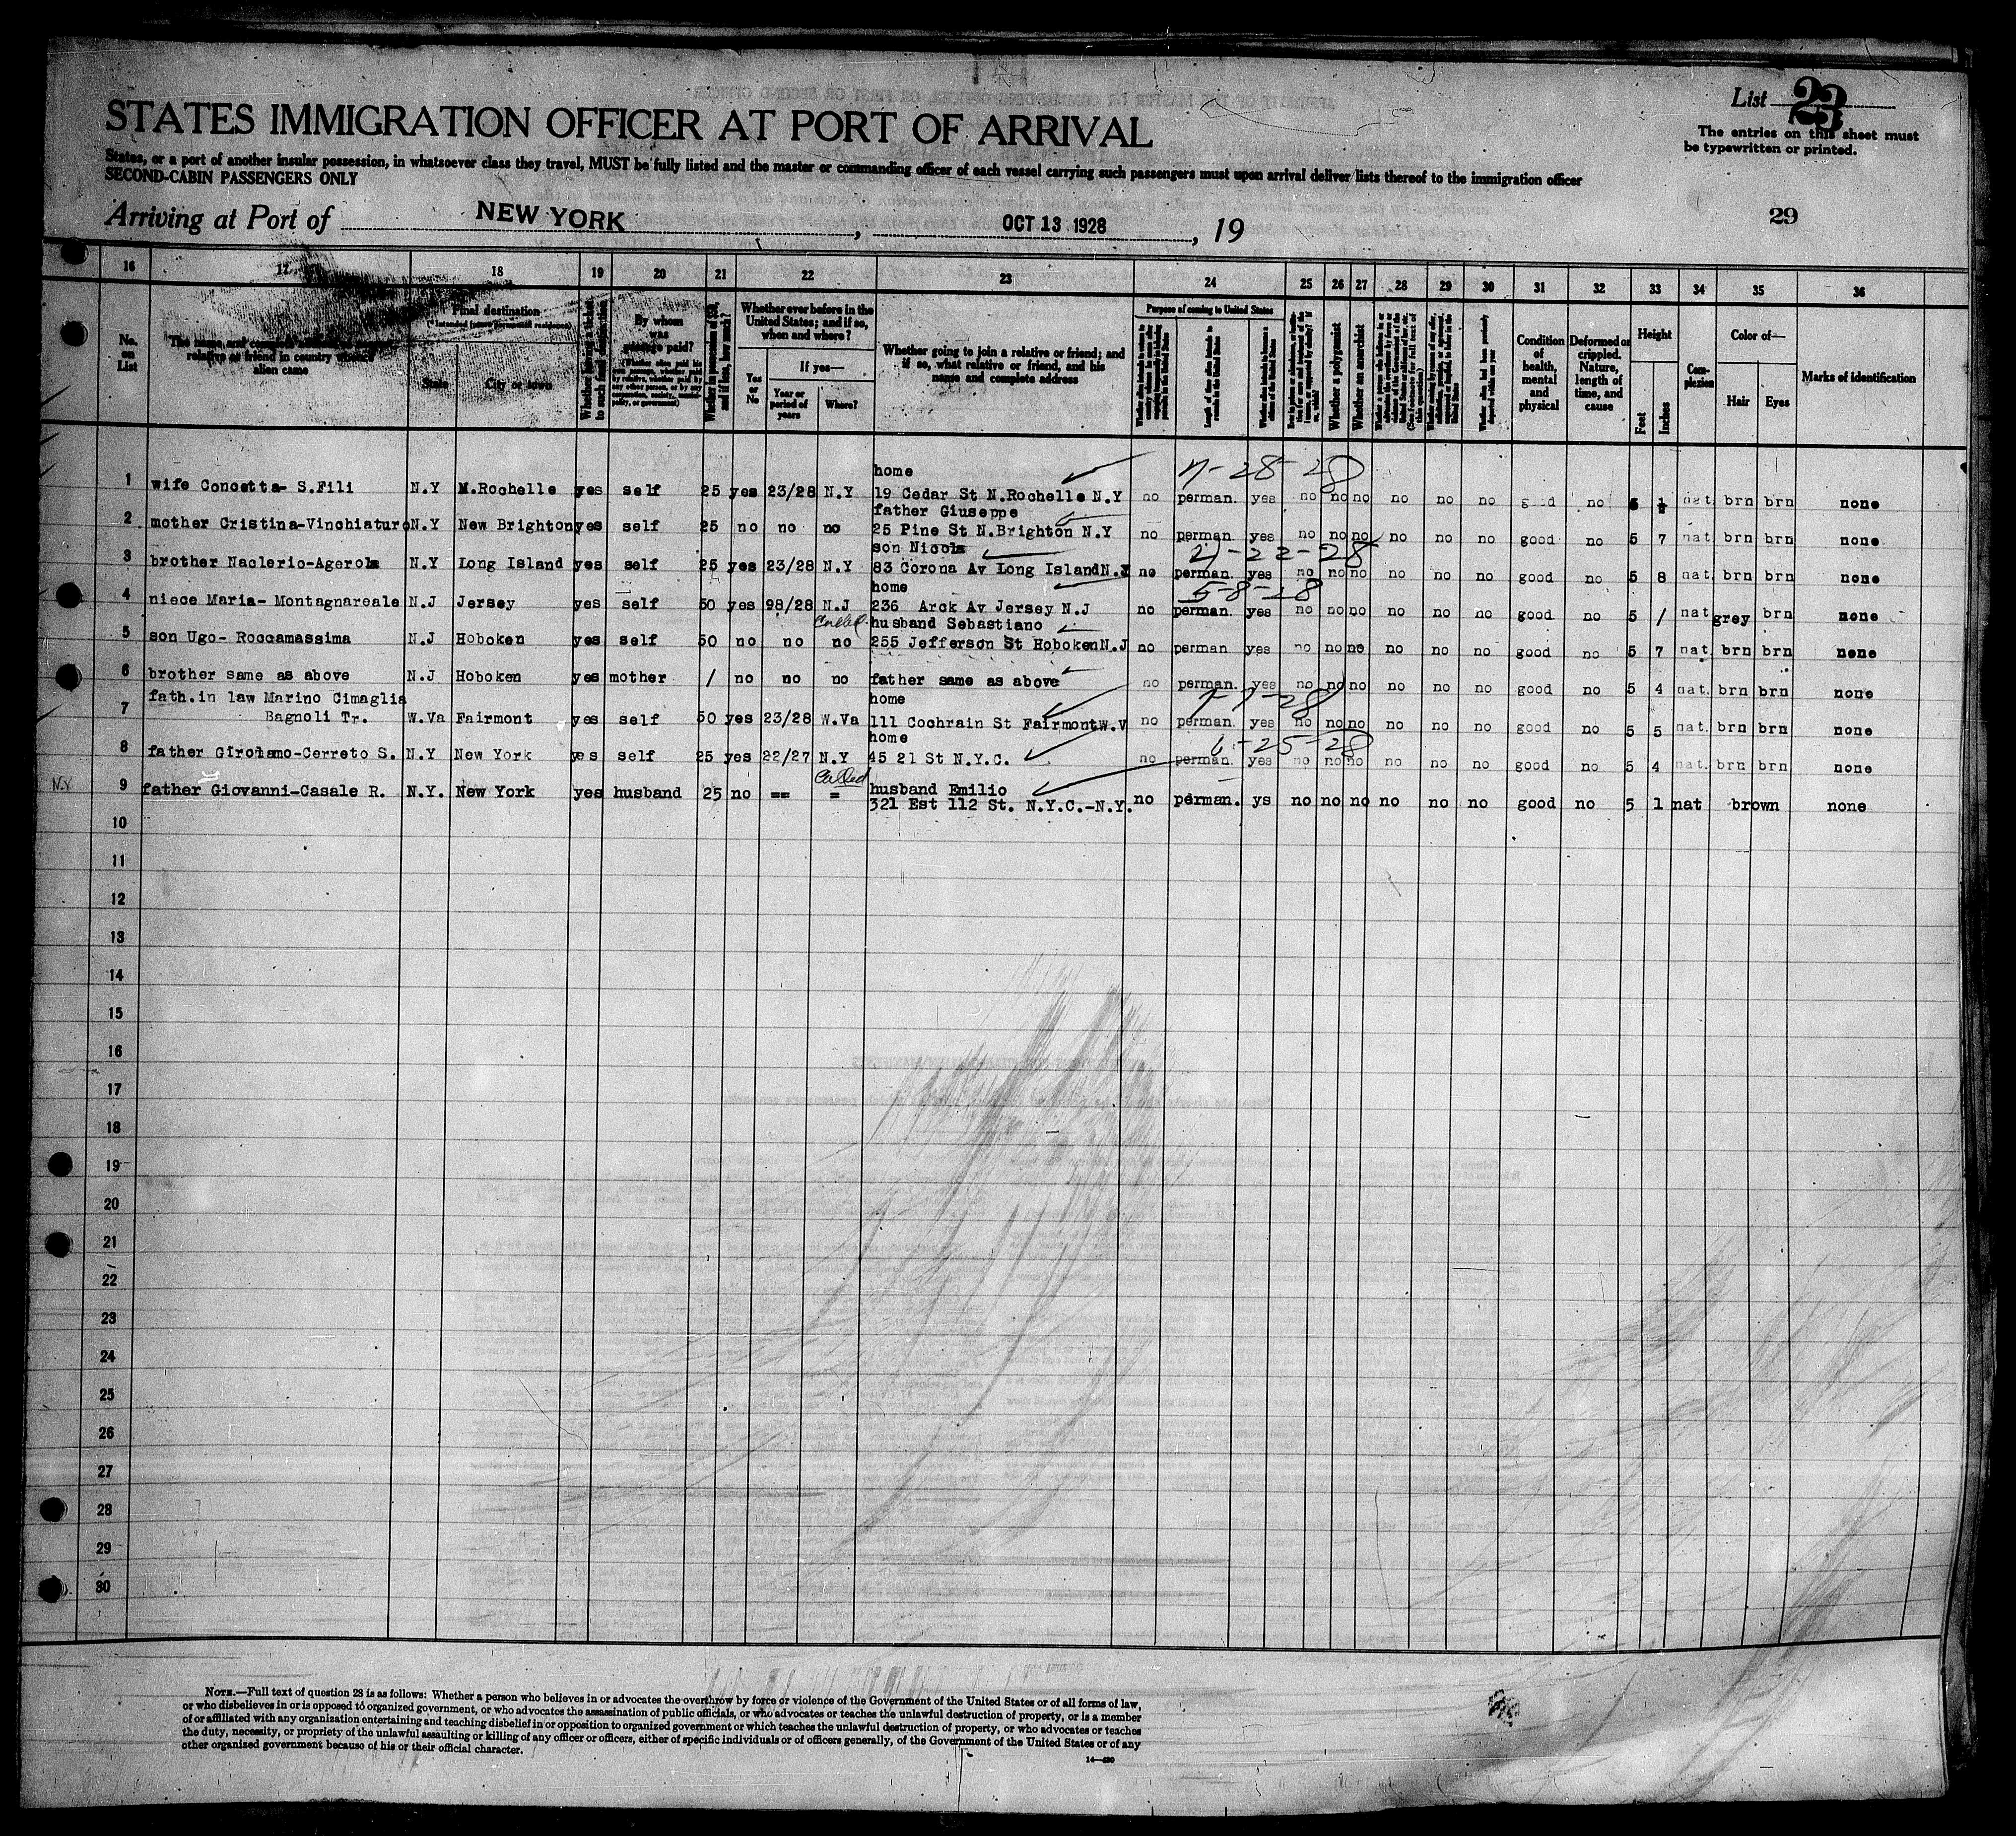 List 23
STATES IMMIGRATION OFFICER AT PORT OF ARRIVAL
The entries on this sheet must
be typewritten or printed.
States, or a port of another insular possession, in whatsoever class they travel, MUST be fully listed and the master or commanding officer of each vessel carrying such passengers must upon arrival deliver lists thereof to the immigration officer
SECOND-CABIN PASSENGERS ONLY
Arriving at Port of NEW YORK, OCT 13 1928, 19
29
16 17 18 19 20 21 22 23 24 25 26 27 28 29 30 31 32 33 34 35 36
No. on List
The name and complete address of nearest relative or friend in country whence alien came
Final destination
(* Intended future permanent residence)
State
City or town
Whether having a ticket to such final destination
By whom was passage paid?
Whether in possession of $50, and if less, how much?
Whether ever before in the United States; and if so, when and where?
Yes or No
If yes—
Year or period of years
Where?
Whether going to join a relative or friend; and if so, what relative or friend, and his name and complete address
Purpose of coming to United States
Length of time alien intends to remain in the United States
Whether a polygamist
Whether an anarchist
Condition of health, mental and physical
Deformed or crippled. Nature, length of time, and cause
Height
Feet
Inches
Complexion
Color of—
Hair
Eyes
Marks of identification
home 7-28-28
1 wife Concetta- S.Fili N.Y N.Rochelle yes self 25 yes 23/28 N.Y 19 Cedar St N.Rochelle N.Y no perman. yes no no no no no no good no 5 nat. brn brn none
father Giuseppe
2 mother Cristina-Vinchiaturo N.Y New Brighton yes self 25 no no no 25 Pine St N.Brighton N.Y no perman. yes no no no no no no good no 5 7 nat. brn brn none
son Nicola 2-22-28
3 brother Naclerio-Agerola N.Y Long Island yes self 25 yes 23/28 N.Y 83 Corona Av Long Island N.Y no perman. yes no no no no no no good no 5 8 nat. brn brn none
home 5-8-28
4 niece Maria- Montagnareale N.J Jersey yes self 50 yes 98/28 N.J 236 Arck Av Jersey N.J no perman. yes no no no no no no good no 5 / nat grey brn none
husband Sebastiano
5 son Ugo- Roccamassima N.J Hoboken yes self 50 no no no 255 Jefferson St Hoboken N.J no perman yes no no no no no no good no 5 7 nat. brn brn none
6 brother same as above N.J Hoboken yes mother / no no no father same as above no perman. yes no no no no no no good no 5 4 nat. brn brn none
fath.in law Marino Cimaglia home
7 Bagnoli Tr. W.Va Fairmont yes self 50 yes 23/28 W.Va 111 Cochrain St Fairmont W.V no perman. yes no no no no no no good no 5 5 nat. brn brn none
home 6-25-28
8 father Girolamo-Cerreto S. N.Y New York yes self 25 yes 22/27 N.Y 45 21 St N.Y.C. no perman. yes no no no no no no good no 5 4 nat. brn brn none
Called husband Emilio
N.Y 9 father Giovanni-Casale R. N.Y. New York yes husband 25 no == = 321 Est 112 St. N.Y.C.-N.Y. no perman. ys no no no no no no good no 5 1 nat brown none
10
11
12
13
14
15
16
17
18
19
20
21
22
23
24
25
26
27
28
29
30
NOTE.—Full text of question 28 is as follows: Whether a person who believes in or advocates the overthrow by force or violence of the Government of the United States or of all forms of law,
or who disbelieves in or is opposed to organized government, or who advocates the assassination of public officials, or who advocates or teaches the unlawful destruction of property, or is a member
of or affiliated with any organization entertaining and teaching disbelief in or opposition to organized government or which teaches the unlawful destruction of property, or who advocates or teaches
the duty, necessity, or propriety of the unlawful assaulting or killing of any officer or officers, either of specific individuals or of officers generally, of the Government of the United States or of any
other organized government because of his or their official character.